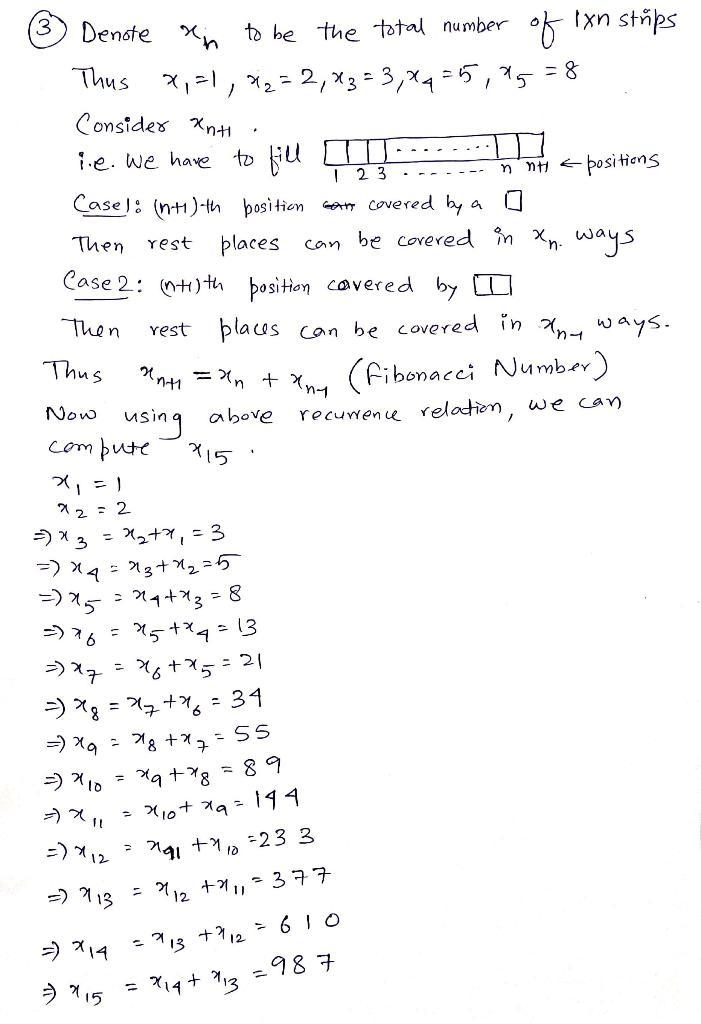 ③ Denote xₙ to be the total number of 1xn strips
Thus x₁=1, x₂=2, x₃=3, x₄=5, x₅=8
Consider xₙ₊₁.
i.e. We have to fill
1 2 3 ------- n n+1 ← positions
Case 1: (n+1)-th position covered by a □
Then rest places can be covered in xₙ. ways
Case 2: (n+1)th position covered by □□
Then rest places can be covered in xₙ₋₁ ways.
Thus xₙ₊₁ = xₙ + xₙ₋₁ (Fibonacci Number)
Now using above recurrence relation, we can
compute x₁₅.
x₁ = 1
x₂ = 2
⇒ x₃ = x₂+x₁ = 3
⇒ x₄ = x₃+x₂ = 5
⇒ x₅ = x₄+x₃ = 8
⇒ x₆ = x₅+x₄ = 13
⇒ x₇ = x₆+x₅ = 21
⇒ x₈ = x₇+x₆ = 34
⇒ x₉ = x₈+x₇ = 55
⇒ x₁₀ = x₉+x₈ = 89
⇒ x₁₁ = x₁₀+x₉ = 144
⇒ x₁₂ = x₁₁+x₁₀ = 233
⇒ x₁₃ = x₁₂+x₁₁ = 377
⇒ x₁₄ = x₁₃+x₁₂ = 610
⇒ x₁₅ = x₁₄+x₁₃ = 987